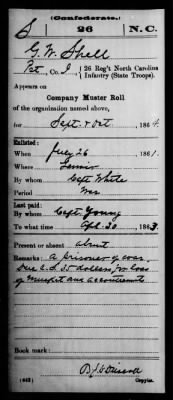 (Confederate.)
S 26 N.C.
G. W. Spell
Pvt, Co. I, 26 Reg't North Carolina
Infantry (State Troops)
Appears on
Company Muster Roll
of the organization named above,
for Sept & Oct, 1864.
Enlisted:
When July 26, 1861.
Where
By whom Capt White
Period War
Last paid:
By whom Capt. Young
To what time Apl. 30, 1863.
Present or absent absent
Remarks: A prisoner of war.
Due C.S. 35 dollars for loss
of musket and accoutrements
Book mark:
(642) Copyist.